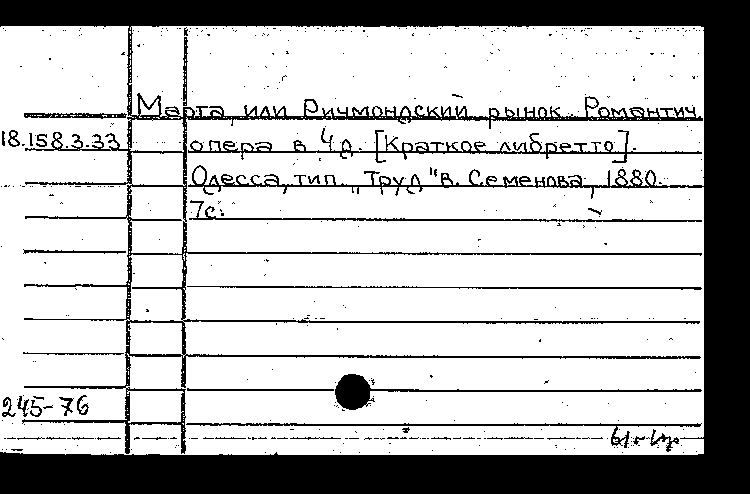 Марта, или Ричмондский рынок. Романтич.
18.158.3.33
опера в 4 д. [Краткое либретто].
Одесса, тип. „Труд" В. Семенова, 1880.
7с.
245-76